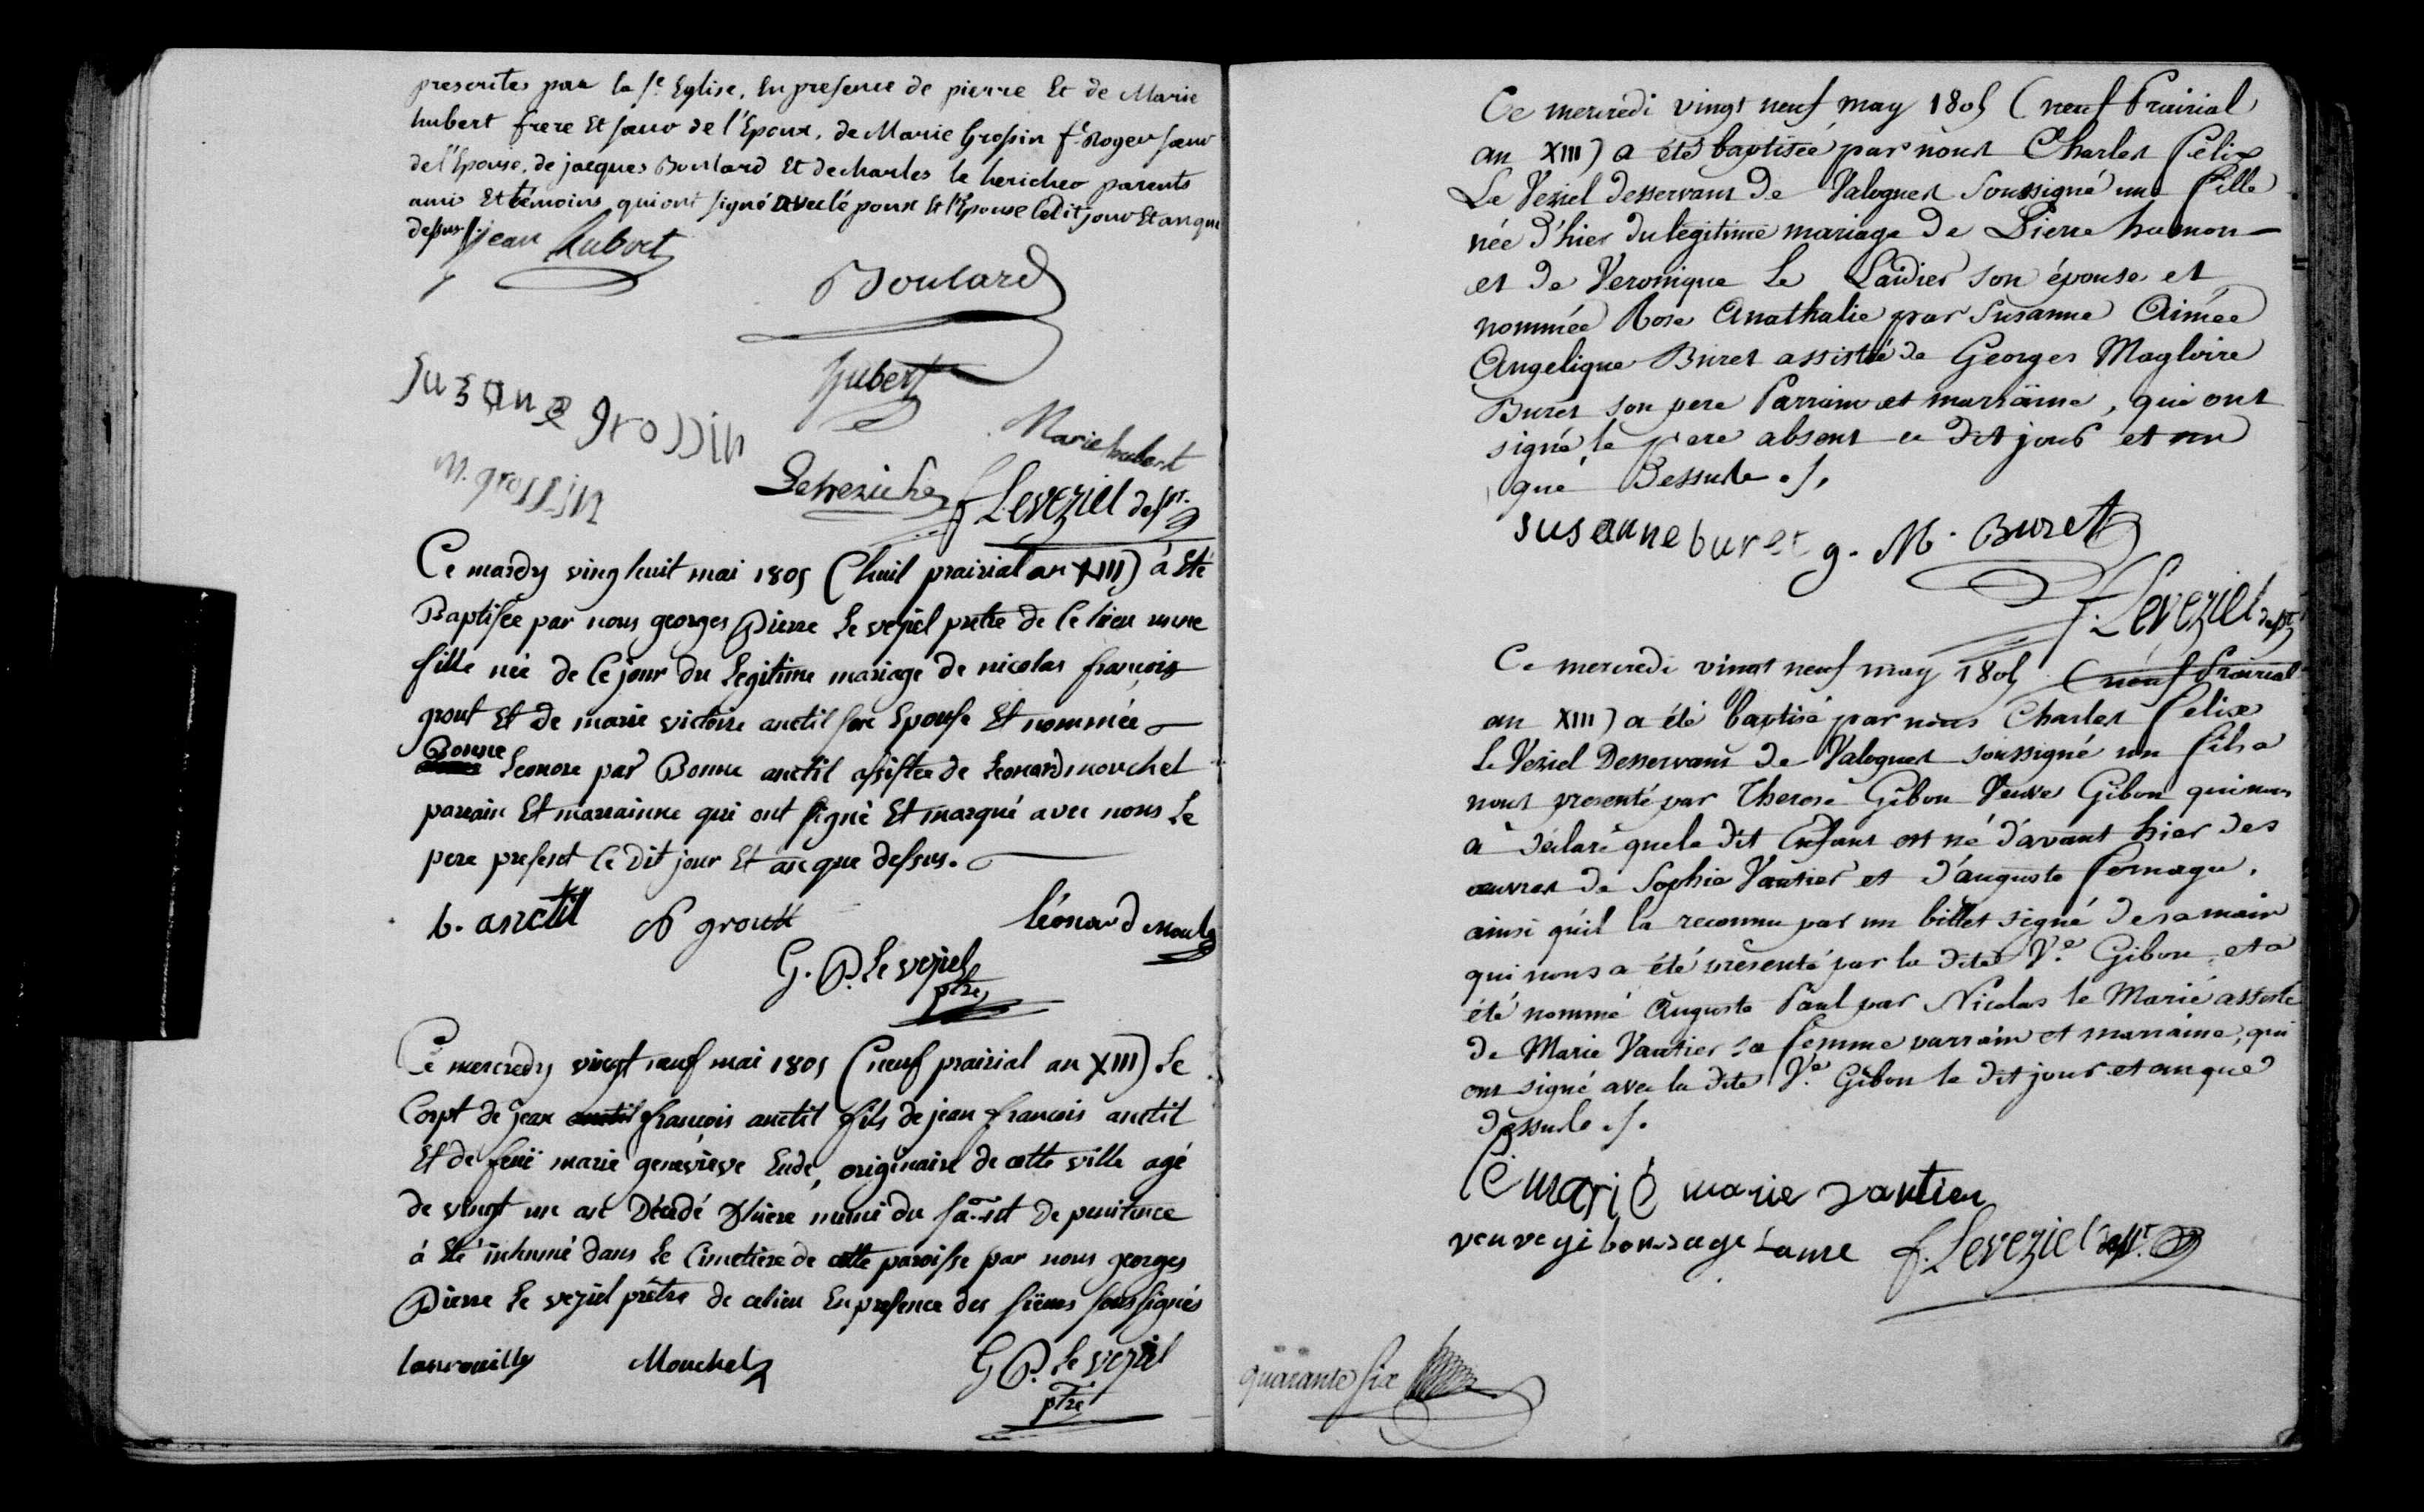 prescrites par la Ste Eglise, En presence de pierre Et de Marie
hubert frere Et soeur de l'Epoux, de Marie Grossin fe Roger soeur
de l'Epouse, de jacques Boulard Et de charles le hericher parents
amis Et témoins qui ont signé avec lépoux Et l'Epouse ledit jour Et an que
dessus
jean hubert
Boulard
hubert
Suzane grossin
Marie hubert
m. grossin
Leheriche
f. Leveziel desst.
Ce mardy ving huit mai 1805 (huit prairial an XIII) à Eté
Baptisée par nous georges Pierre Le veziel pretre de ce lieu une
fille née de ce jour du Legitime mariage de nicolas françois
grout Et de marie victoire anctil son Epouse Et nommée
Bonne
Leonore par Bonne anctil assistée de Leonard mouchel
parrain Et marrainne qui ont signé Et marqué avec nous Le
pere present Ce Dit jour Et an que dessus.
b. anctil
N groult
léonard
G. P. Le veziel
ptre
Ce mercredy vingt neuf mai 1805 (neuf prairial an XIII) Le
Corps de jean anctil françois anctil fils de jean francois anctil
Et de feuë marie geneviève Eude, originaire de cette ville agé
de vingt un an Décédé D'hière muni du sa-nt De penitence
à Eté inhumé dans Le Cimetière de cette paroisse par nous georges
Pierre Le veziel prêtre de ce lieu En presence des sieurs soussignés
Lanrouilly
Mouchel
G P. Le veziel
ptre
Ce mercredi vingt neuf may 1805 (neuf Prairial
an XIII) a été baptisée par nous Charles félix
Le Veziel desservant de Valognes soussigné une fille
née d'hier du légitime mariage de Pierre hamon
et de Veronique Le Laidier son épouse et
nommée Rose Anathalie par Susanne Aimée
Angelique Buret assistée de Georges Magloire
Buret son pere Parrain et marraine, qui ont
signé, le pere absent ce dit jour et an
que Dessus ./.
susanne buret
g. M. Buret
f. Leveziel desst
Ce mercredi vingt neuf may 1805 (neuf Prairial
an XIII) a été baptisé par nous Charles felix
Le Veziel Desservant de Valognes soussigné un fils a
nous presenté par Therese Gibon Veuve Gibon qui nous
a déclaré que le dit Enfant est né d'avant hier des
œuvres de Sophie Vautier et d'auguste fernagu,
ainsi qu'il la reconnu par un billet signé de sa main
qui nous a été présenté par la dite Ve Gibon, et a
été nommé Auguste Paul par Nicolas le Marié assisté
de Marie Vautier sa femme parrain et marraine, qui
ont signé avec la dite Ve Gibon le dit jour et an que
dessus ./.
le marié
marie vautier
veuve gibon sage fame
f. Leveziel desst.
quarante six